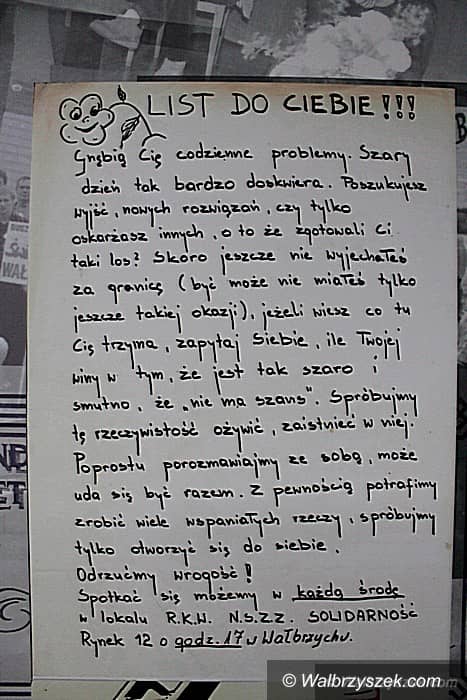 LIST DO CIEBIE!!!
Gnębią Cię codzienne problemy. Szary
dzień tak bardzo doskwiera. Poszukujesz
wyjść, nowych rozwiązań, czy tylko
oskarżasz innych, o to że zgotowali Ci
taki los? Skoro jeszcze nie wyjechałeś
za granicę (być może nie miałeś tylko
jeszcze takiej okazji), jeżeli wiesz co tu
Cię trzyma, zapytaj Siebie, ile Twojej
winy w tym, że jest tak szaro i
smutno, że „nie ma szans". Spróbujmy
tę rzeczywistość ożywić, zaistnieć w niej.
Poprostu porozmawiajmy ze sobą, może
uda się być razem. Z pewnością potrafimy
zrobić wiele wspaniałych rzeczy, spróbujmy
tylko otworzyć się do siebie.
Odrzućmy wrogość!
Spotkać się możemy w każdą środę
w lokalu R.K.W. N.S.Z.Z. SOLIDARNOŚĆ
Rynek 12 o godz. 17 w Wałbrzychu.
© Walbrzyszek.com